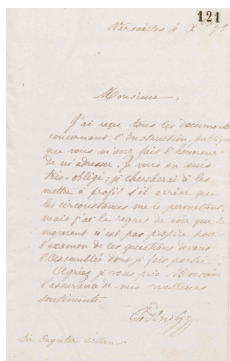 121
Versailles 4 X
Monsieur,
J'ai reçu tous les documents
concernant l'Instruction publique
que vous m'avez fait l'honneur
de m'adresser. Je vous en suis
très obligé ; je chercherai à les
mettre à profit s'il arrive que
les circonstances me le permettent,
mais j'ai le regret de voir que le
moment n'est pas propice pour
l'examen de ces questions devant
l'Assemblée dont je fais partie.
Agréez je vous prie Monsieur
l'assurance de mes meilleurs
sentiments.